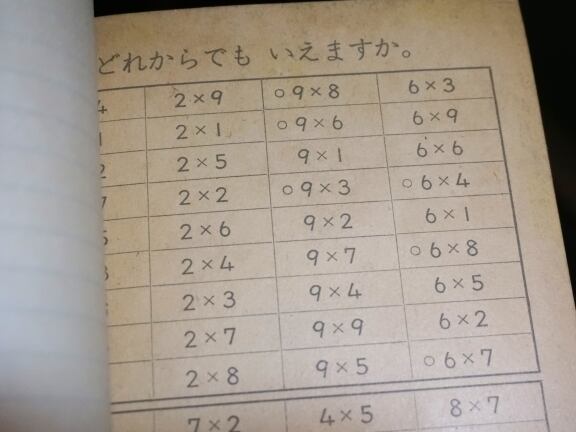 どれからでも いえますか。
4 2×9 ○9×8 6×3
1 2×1 ○9×6 6×9
2 2×5 9×1 6×6
7 2×2 ○9×3 ○6×4
2×6 9×2 6×1
2×4 9×7 ○6×8
2×3 9×4 6×5
2×7 9×9 6×2
2×8 9×5 ○6×7
7×2 4×5 8×7